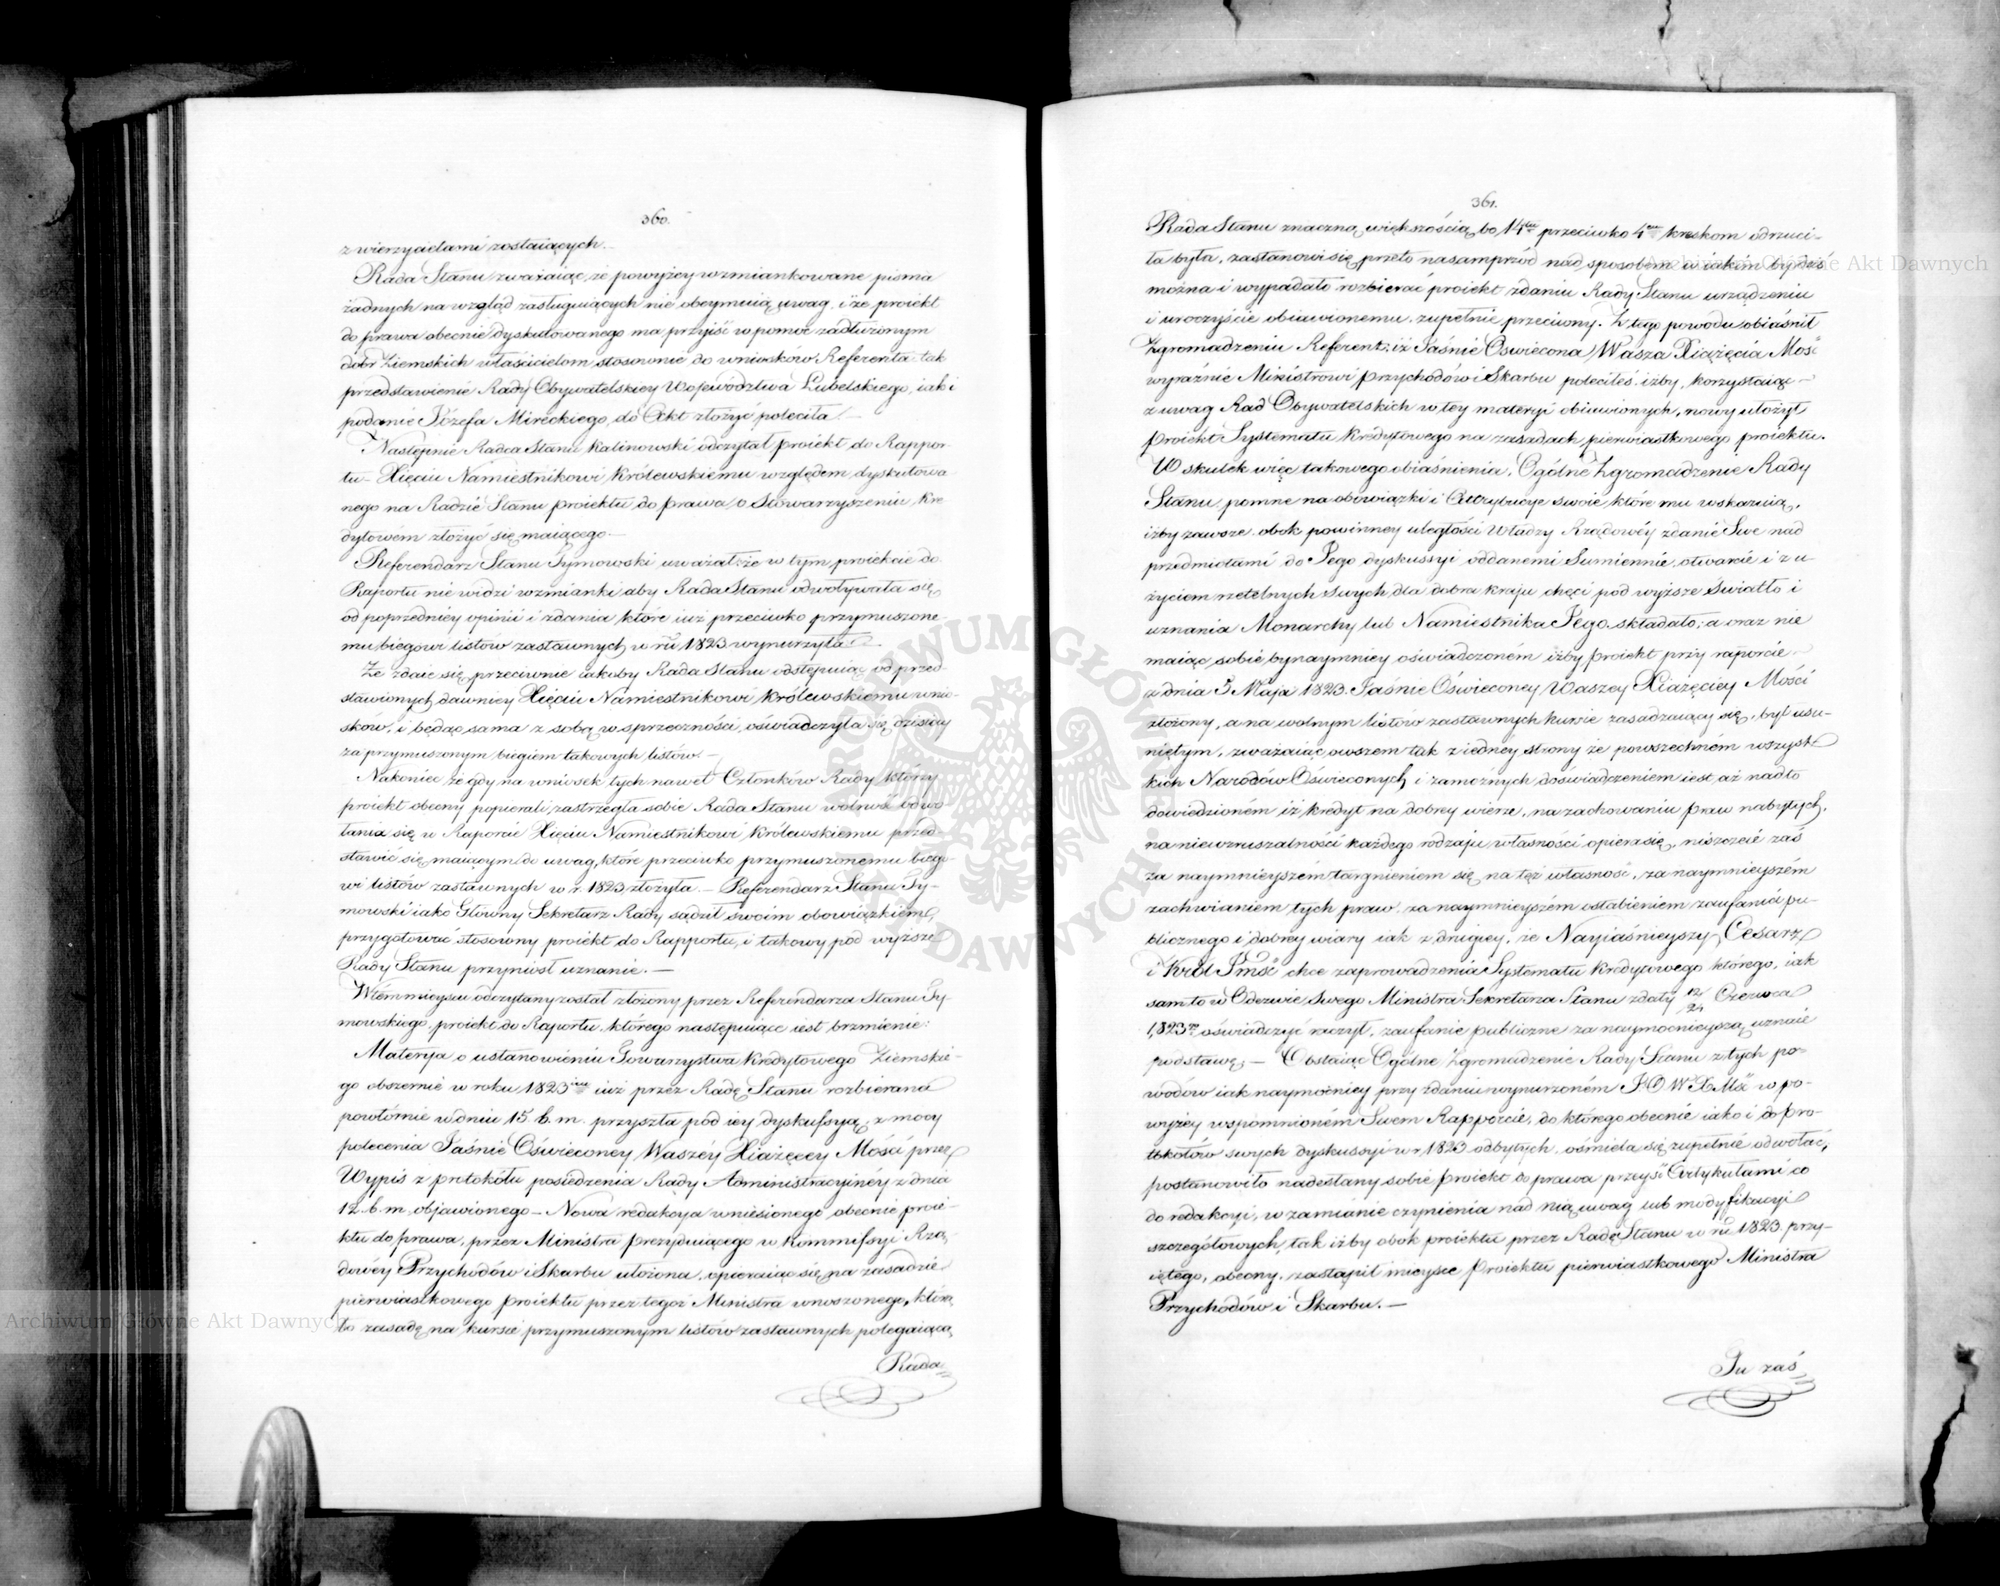 360.
z wierzycielami zostaiących.—
Rada Stanu zważaiąc, że powyżey wzmiankowane pisma
żadnych na wzgląd zasługuiących nie obeymuią uwag, i że proiekt
do prawa obecnie dyskutowanego ma przyiść w pomoc zadłużonym
dóbr Ziemskich właścicielom stosownie do wniosków Referenta tak
przedstawienie Rady Obywatelskiey Województwa Lubelskiego, iak i
podanie Józefa Mireckiego, do Akt złożyć poleciła.—
Następnie Radca Stanu Kalinowski odczytał proiekt do Rappor-
tu Xięciu Namiestnikowi Królewskiemu względem dyskutowa-
nego na Radzie Stanu proiektu do prawa o Stowarzyszeniu Kre
dytowém złożyć się maiącego.—
Referendarz Stanu Tymowski uważał: że w tym proiekcie do
Raportu nie widzi wzmianki aby Rada Stanu odwoływała się
od poprzedniey opinii i zdania które iuż przeciwko przymuszone-
mu biegowi listów zastawnych w rũ 1823 wynurzyła.
Że zdaie się przeciwnie iakoby Rada Stanu odstępuiąc od przed-
stawionych dawniey Xięciu Namiestnikowi Królewskiemu wnio-
sków, i będąc sama z sobą w sprzeczności, oświadczyła się dzisiay
za przymuszonym biegiem takowych listów.—
Nakoniec że gdy na wniosek tych nawet Członków Rady którzy
proiekt obecny popierali, zastrzegła sobie Rada Stanu wolność odwo
łania się w Raporcie Xięciu Namiestnikowi Królewskiemu przed-
stawić się maiącym do uwag, które przeciwko przymuszonemu biego-
wi listów zastawnych w r. 1823 złożyła.— Referendarz Stanu Ty-
mowski iako Główny Sekretarz Rady sądził swoim obowiązkiem,
przygotować stosowny proiekt do Rapportu, i takowy pod wyższe
Rady Stanu przyniósł uznanie.—
W tém mieyscu odczytany został złożony przez Referendarza Stanu Ty-
mowskiego, proiekt do Raportu, którego następuiące iest brzmienie:
Materya o ustanowieniu Towarzystwa Kredytowego Ziemskie-
go obszernie w roku 1823 iuż przez Radę Stanu rozbierana
powtórnie w dniu 15. b. m. przyszła pod iey dyskussyą z mocy
polecenia Jaśnie Oświeconey Waszéy Xiążęcey Mości przez
Wypis z protokółu posiedzenia Rady Administracyinéy z dnia
12. b. m. objawionego.— Nowa redakcya wniesionego obecnie proie-
ktu do prawa, przez Ministra prezyduiącego w Kommissyi Rzą-
dowéy Przychodów i Skarbu ułożona, opieraiąc się na zasadzie
pierwiastkowego proiektu przez tegoż Ministra wnoszonego, którą
to zasadę na kursie przymuszonym listów zastawnych polegaiącą,
Rada
361.
Rada Stanu znaczną większością, bo 14tu przeciwko 4em kreskom odrzuci-
ła była, zastanowi się przeto nasamprzód nad sposobem w iakim bydź
można i wypadało rozbierać proiekt zdaniu Rady Stanu urządzeniu
i uroczyście obiawionemu zupełnie przeciwny. Z tego powodu obiaśnił
Zgromadzeniu Referent: iż Jaśnie Oświecona Wasza Xiążęcia Mość
wyraźnie Ministrowi Przychodów i Skarbu poleciłeś, iżby, korzystaiąc—
z uwag Rad Obywatelskich w tey materyi obiawionych, nowy ułożył
Proiekt Systematu Kredytowego na zasadach pierwiastkowego proiektu.
W skutek więc takowego obiaśnienia, Ogólne Zgromadzenie Rady
Stanu, pomne na obowiązki i Attrybucye swoie, które mu wskazuią,
iżby zawsze obok powinney uległości Władzy Rządowéy zdanie Swe nad
przedmiotami do Jego dyskussyi oddanemi Sumiennie, otwarcie i z u-
życiem rzetelnych swych dla dobra kraju chęci pod wyższe światło i
uznania Monarchy lub Namiestnika Jego składało; a oraz nie
maiąc sobie bynaymniey oświadczoném iżby proiekt przy raporcie
z dnia 5 Maja 1823. Jaśnie Oświeconey Waszey Xiążęciey Mości
złożony, a na wolnym listów zastawnych kursie zasadzaiący się, był usu-
niętym, zważaiąc owszem tak z iedney strony że powszechném wszyst-
kich Narodów Oświeconych i zamożnych doświadczeniem iest, aż nadto
dowiedzioném iż kredyt na dobrey wierze, na zachowaniu praw nabytych,
na niewzruszalności każdego rodzaju własności opiera się, niszczeie zaś
za naymnieyszém targnieniem się na też własność, za naymnieyszém
zachwianiem tych praw, za naymnieyszém osłabieniem zaufania pu-
blicznego i dobrey wiary iak z drugiey, że Nayiaśnieyszy Cesarz
i Król Jmść chce zaprowadzenia Systematu Kredytowego którego, iak
sam to w Odezwie Swego Ministra Sekretarza Stanu z daty 12/24 Czerwca
1823 oświadczyć raczył, zaufanie publiczne za naymocnieyszą uznaie
podstawę.— Obstaiąc Ogólne Zgromadzenie Rady Stanu z tych po-
wodów iak naymocniey przy zdaniu wynurzoném J O W X Mści w po-
wyżey wspomnioném Swem Rapporcie, do którego obecnie iako i do pro-
tokółów swych dyskussyi w r. 1823 odbytych, ośmiela się zupełnie odwołać,
postanowiło nadesłany sobie proiekt do prawa przeyść Artykułami co
do redakcyi, w zamianie czynienia nad nią uwag lub modyfikacyi
szczegółowych, tak iżby obok proiektu przez Radę Stanu w rũ 1823 przy-
iętego, obecny zastąpił mieysce Proiektu pierwiastkowego Ministra
Przychodów i Skarbu.—
Tu zaś
Archiwum Główne Akt Dawnych
Archiwum Główne Akt Dawnych
ARCHIWUM GŁÓWNE AKT DAWNYCH